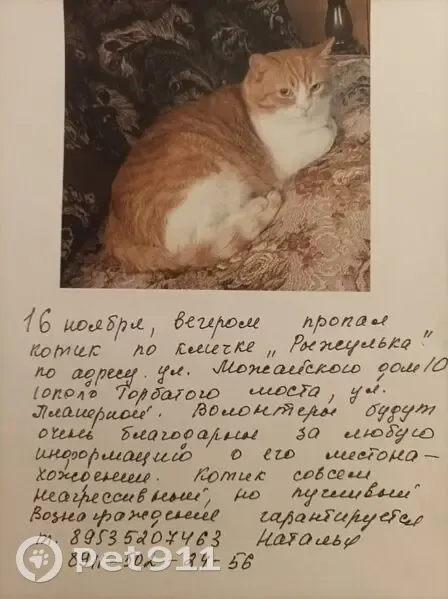 16 ноября, вечером пропал
котик по кличке „Рыжулька".
по адресу ул. Можайского дом 10
(около Горбатого моста, ул.
Планерной. Волонтеры будут
очень благодарны за любую
информацию о его местона-
хождении. Котик совсем
неагрессивный, но пугливый
Вознаграждение гарантируется
т. 89535207463 Наталья
8911-502-24-56
Pet911